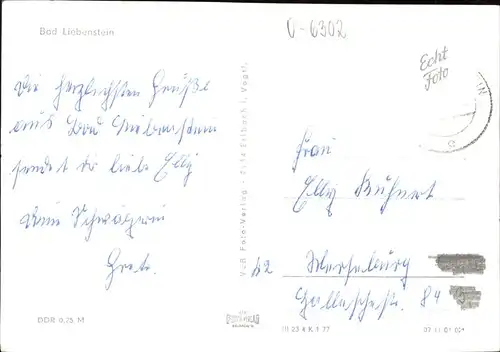 Bad Liebenstein
0-6302
Echt
Foto
Die herzlichsten Grüße
aus Bad Liebenstein
sendet dir liebe Elly
Deine Schwägerin
Gret.
Frau
Elly Kuhnert
42 Merseburg
Hallesche str. 84
VEB Foto-Verlag Erlbach i. Vogtl.
DDR 0,25 M
III 23 4 K 1 77
07 11 01 02